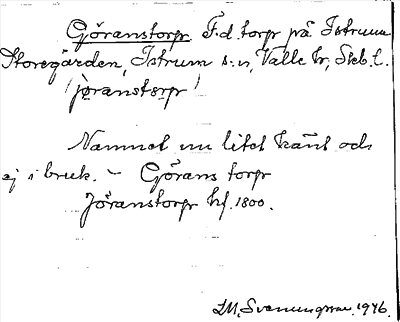 Göranstorp. F.d. torp på Istrum
Storegården, Istrum s:n, Valle hd, Skb. l.
/jöranstorp/
Namnet nu litet känt och
ej i bruk. – Görans torp
Jöranstorp hfl. 1800.
I.M. Svenungsson. 1946.